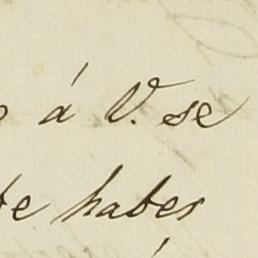 á V. se
haber